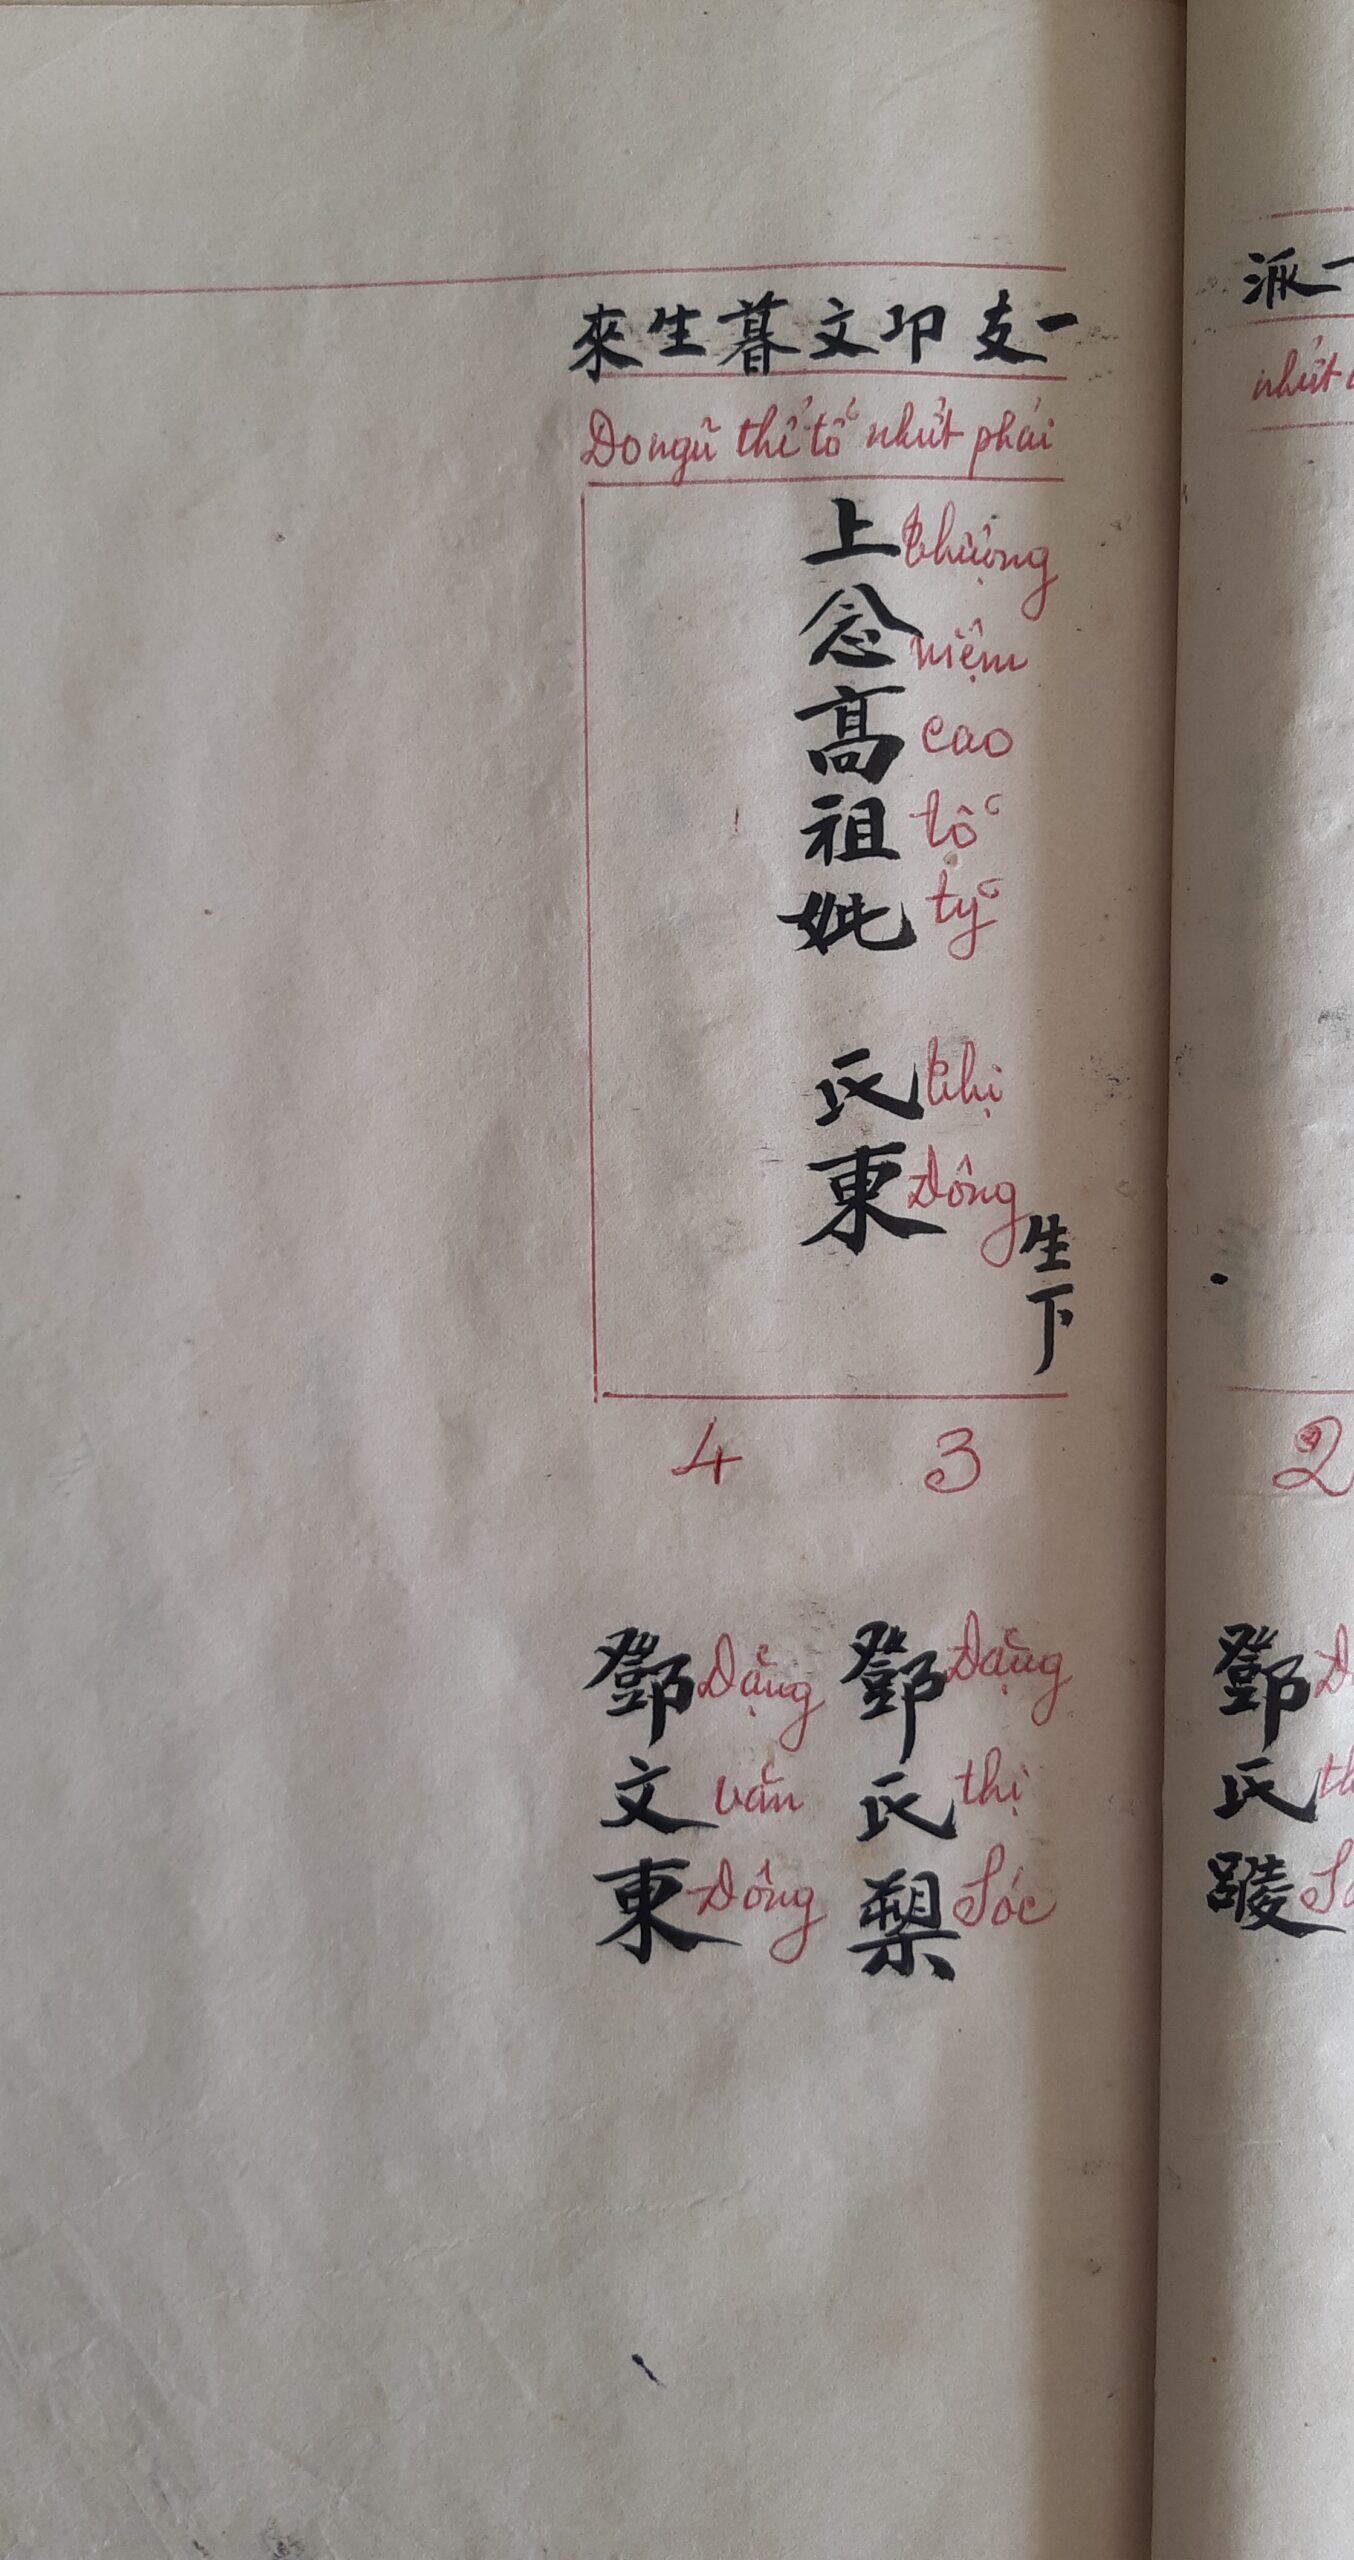 一派
nhứt
2
鄧氏
一支印文暮生來
Do ngũ thế tổ nhứt phái
上念高祖妣 氏東
thượng niệm cao tổ tỷ thị Đông
生下
3
鄧氏槊
Đặng thị Sóc
4
鄧文東
Đặng văn Đông